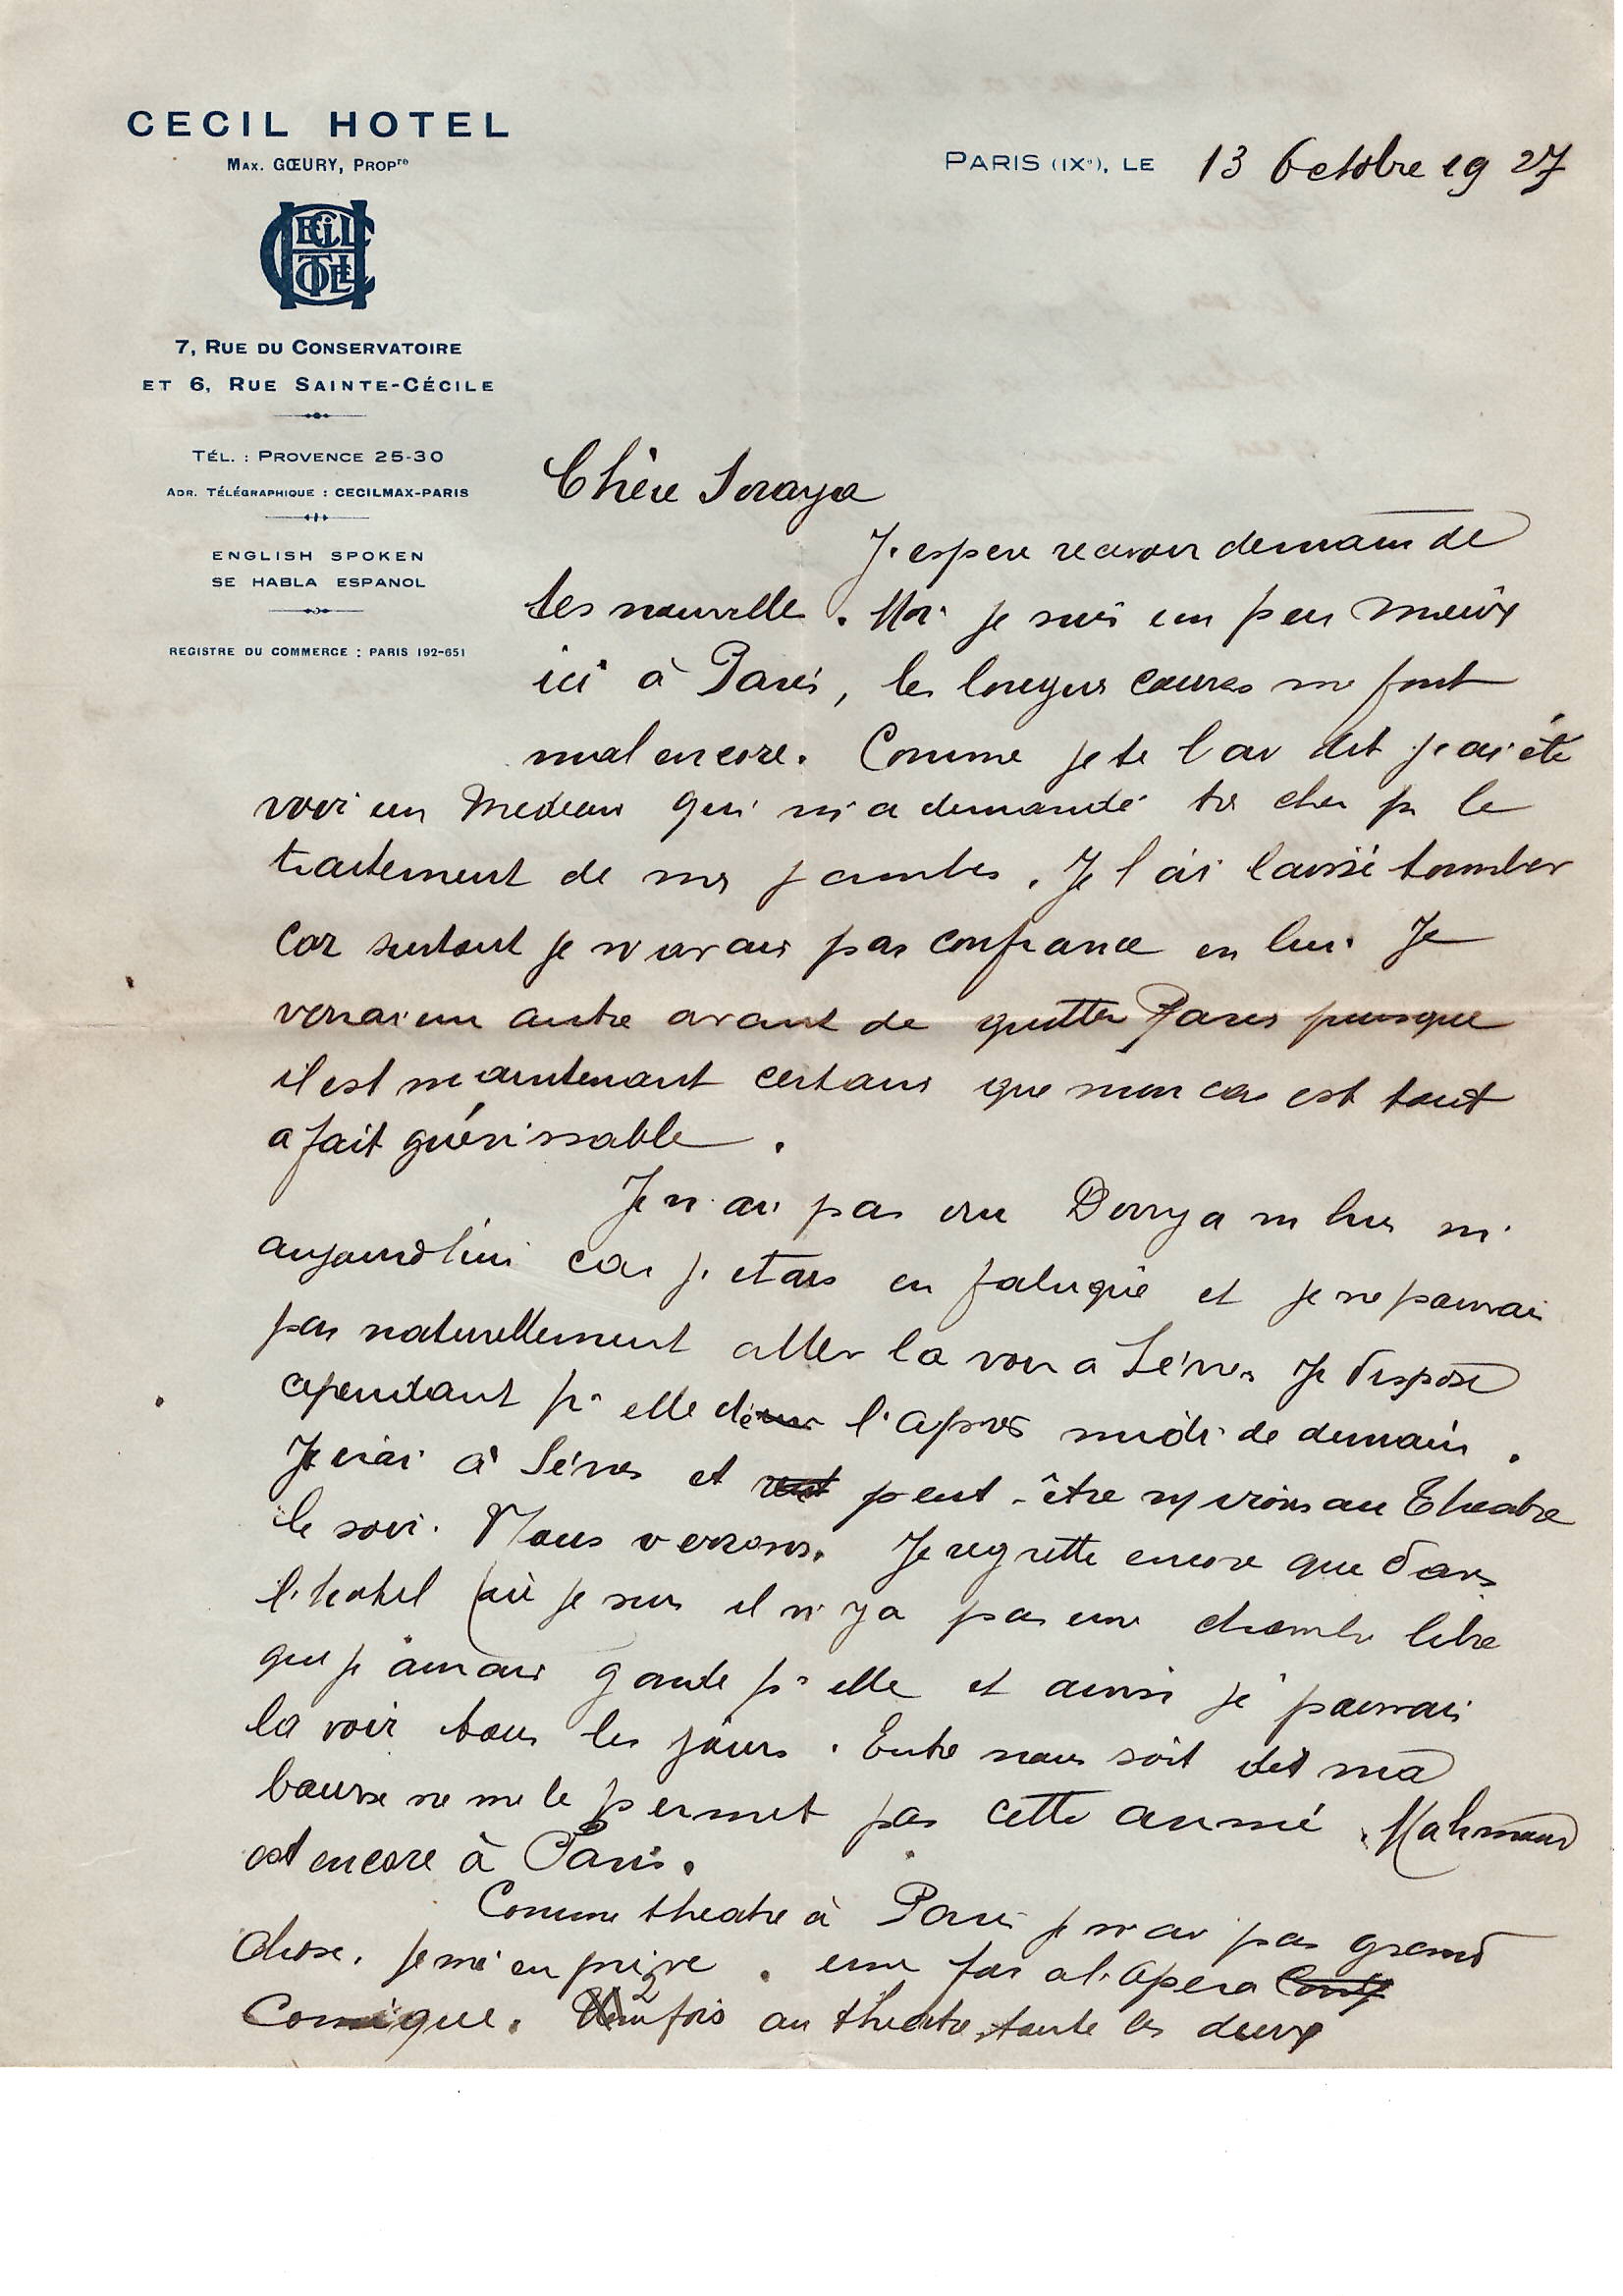 CECIL HOTEL
MAX. GŒURY, PROPre
CECIL HOTEL
7, RUE DU CONSERVATOIRE
ET 6, RUE SAINTE-CÉCILE
TÉL. : PROVENCE 25-30
ADR. TÉLÉGRAPHIQUE : CECILMAX-PARIS
ENGLISH SPOKEN
SE HABLA ESPANOL
REGISTRE DU COMMERCE : PARIS 192-651
PARIS (IXe), LE 13 Octobre 1927
Chère Soraya
J'espere recevoir demain de
tes nouvelle. Moi je suis un peu mieux
ici à Paris, les longues courses me font
mal encore. Comme je te l'ai dit j'ai été
voir un Medecin qui m'a demandé très cher pr le
traitement de mes jambes. Je l'ai laissé tomber
car surtout je n'avais pas confiance en lui. Je
verrai un autre avant de quitter Paris puisque
il est maintenant certain que mon cas est tout
a fait guérissable.
Je n'ai pas vu Dorrya ni hier ni
aujourd'hui car j'etais en fatigue et je ne pouvais
pas naturellement aller la voir a Sèvres. Je dispose
cependant pr elle de l'apres midi de demain.
J'irai à Sèvres et peut-être ns irons au Theatre
le soir. Nous verrons. Je regrette encore que dans
l'hotel où je suis il n'y a pas une chambre libre
que j'aurais gardé pr elle et ainsi je pourrais
la voir tous les jours. Entre nous soit dit ma
bourse ne me le permet pas cette année. Mahmoud
est encore à Paris.
Comme theatre à Paris je n'ai pas grand
chose. Je m'en prive. une fois a l'Opera
Comique. 2 fois au theatre, toute les deux